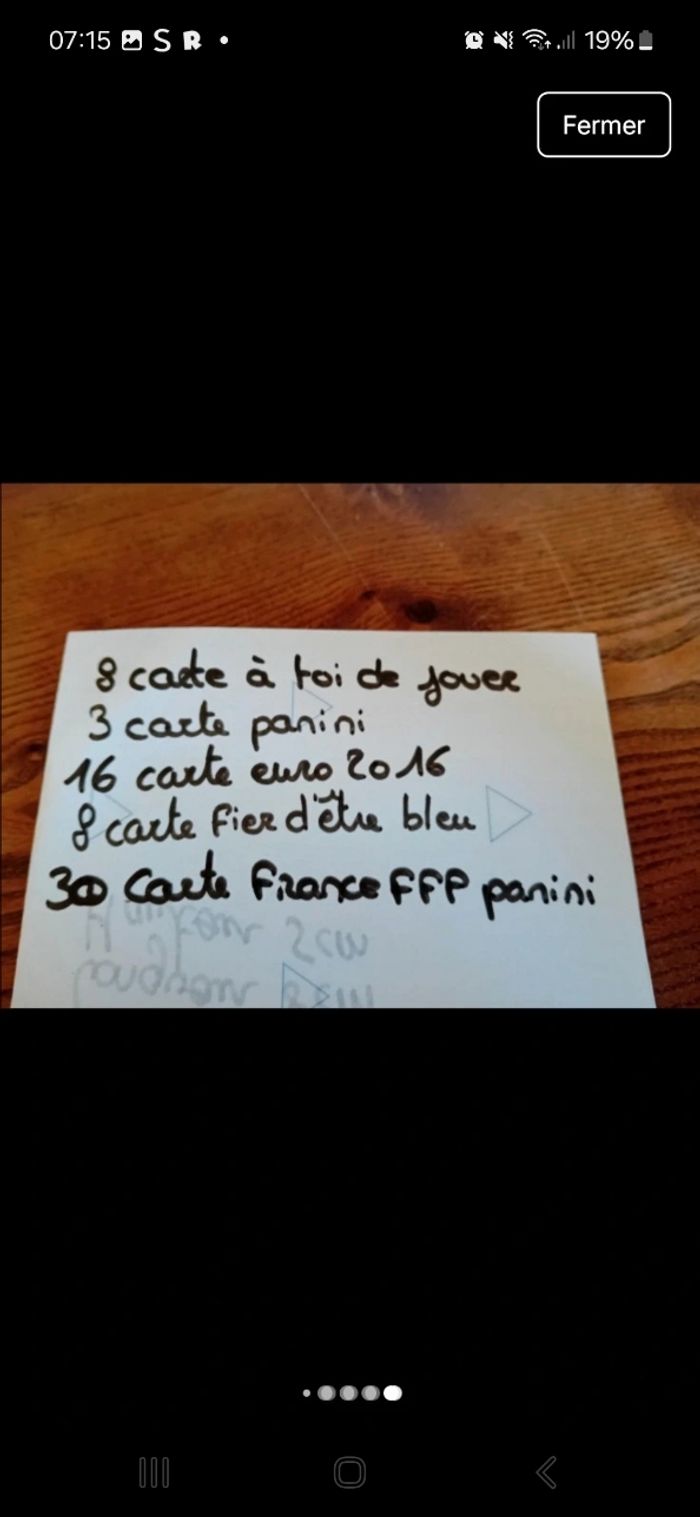 07:15
19%
Fermer
8 carte à toi de jouer
3 carte panini
16 carte euro 2016
8 carte Fier d'être bleu
30 Carte France FFP panini
2 cm